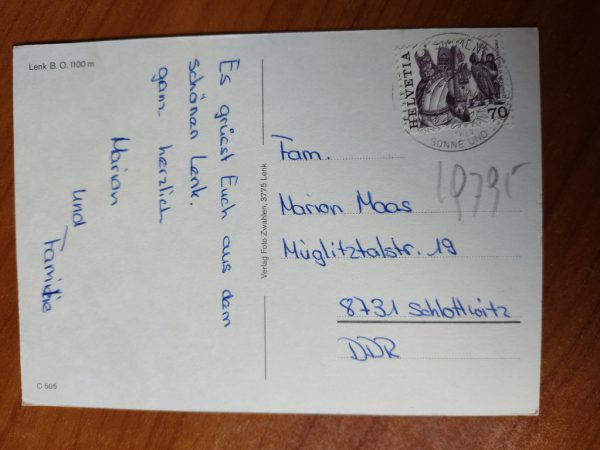 Lenk B. O. 1100 m
Es grüsst Euch aus dem
schönen Lenk.
ganz herzlich
Marian
und
Familie
C 505
Verlag Foto Zwahlen, 3775 Lenk
HELVETIA
70
SONNE UND
Fam.
Marion Maas
Müglitztalstr. 19
8731 Schlottwitz
DDR